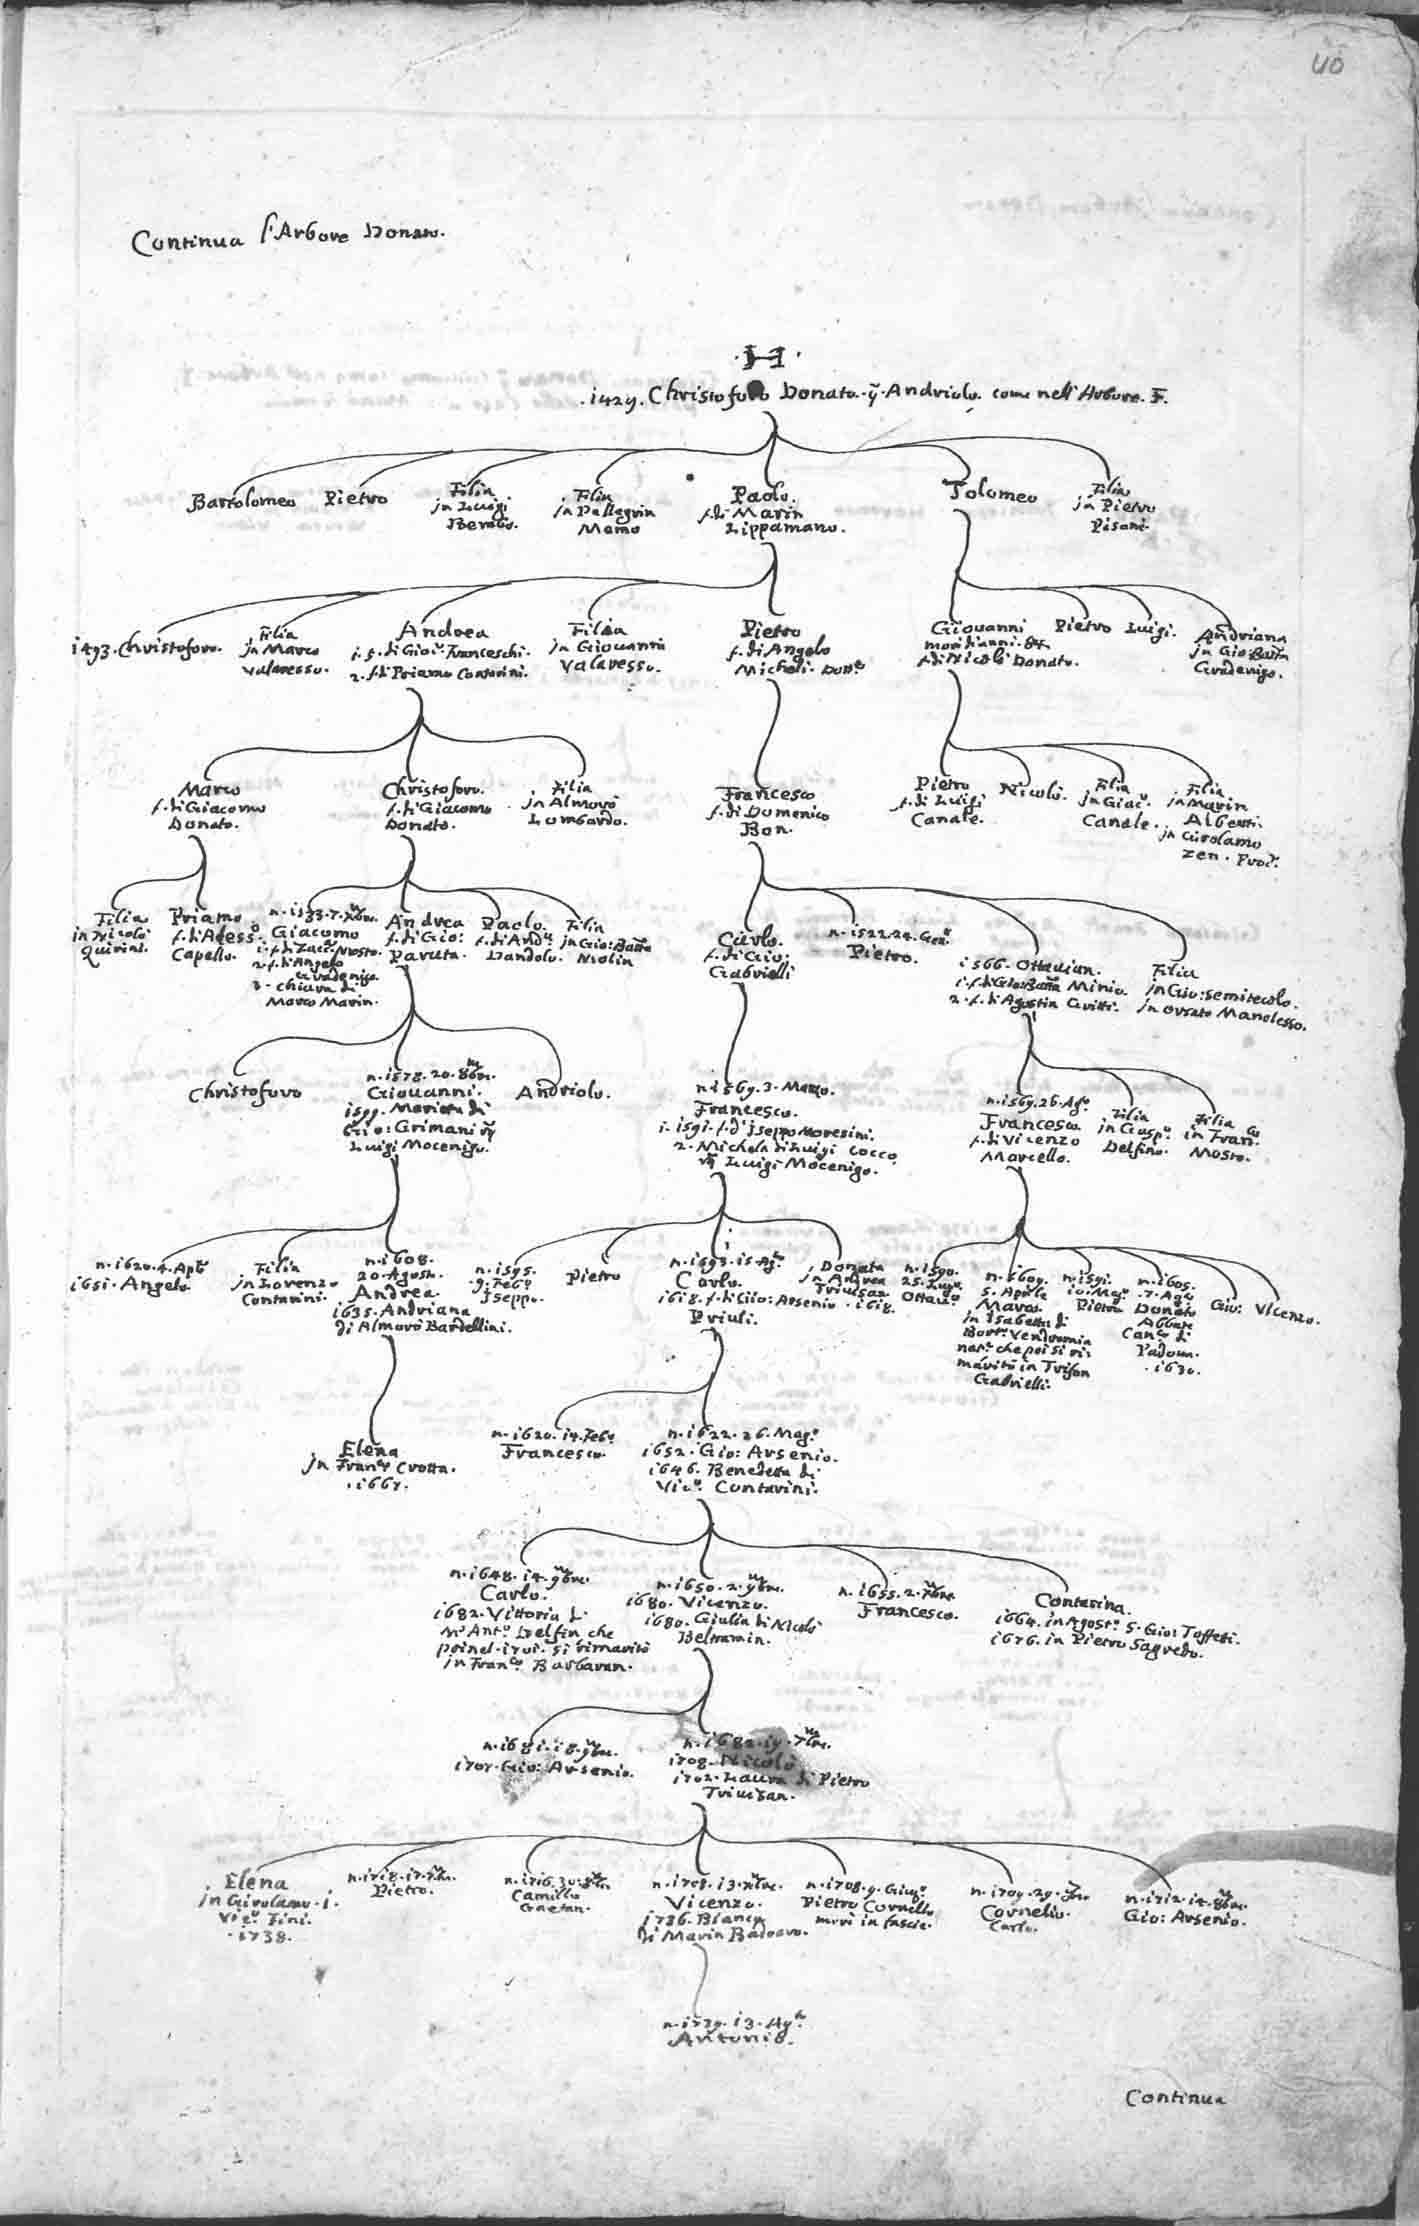 40
Continua l'Arbore Donato.
·H·
.1429. Christoforo Donato. q. Andriolo. come nell'Arbore. F.
Bartolomeo
Pietro
Filia
in Luigi
Bembo.
Filia
in Pellegrin
Memo
Paolo.
f. di Marin
Lippamano.
Tolomeo
Filia
in Pietro
Pisani.
1493. Christoforo.
Filia
in Marco
Valaresso.
Andrea
1. f. di Gio: Franceschi.
2. f. di Priamo Contarini.
Filia
in Giovanni
Valaresso.
Pietro
f. di Angelo
Micheli. Dott.
Giovanni
f. di Nicolò Donato.
Pietro
Luigi.
Andriana
in Gio: Batta
Gradenigo.
Marco
f. di Giacomo
Donato.
Christoforo.
f. di Giacomo
Donato.
Filia
in Almorò
Lombardo.
Francesco
f. di Domenico
Bon.
Pietro
f. di Luigi
Canale.
Nicolò.
Filia
in Giac.
Canale.
Filia
in Marin
Alberti.
in Girolamo
Zen. Proc.
Filia
in Nicolò
Quirini.
Priamo
f. di Adesso
Capello.
n. 1533. 7. Xbre.
Giacomo
1. f. di Zacc. Mosto.
2. f. di Angelo
Gradenigo.
3. Chiara di
Marco Marin.
Andrea
f. di Gio:
Paruta.
Paolo.
f. di And.
Dandolo.
Filia
in Gio: Batta
Molin
Carlo.
f. di Gio:
Gabrielli
n. 1522. 24. Gen.
Pietro.
1566. Ottavian.
1. f. di Gio: Batta Minio.
2. f. di Agostin
Filia
in Gio: Semitecolo.
in Orsato Manolesso.
Christoforo
n. 1578. 20. 8bre.
Giovanni.
1599. Marieta di
Gio: Grimani
Luigi Mocenigo.
Andriolo.
n. 1569. 3. Marzo.
Francesco.
1. 1591. f. d'Iseppo Moresini.
2. Michela di Luigi Cocco
Luigi Mocenigo.
n. 1569. 26. Ago.
Francesco
f. di Vicenzo
Marcello.
Filia
in Gasp.
Delfino.
Filia
in Fran.co
Mosto.
n. 1620. 4. Apr.
1651. Angelo.
Filia
in Lorenzo
Contarini.
n. 1608.
20. Agosto.
Andrea
1635. Andriana
di Almorò Bardellini.
n. 1595.
9. Feb.
Iseppo.
Pietro
n. 1593. 15. Ag.
Carlo.
1618. f. di Gio: Arsenio
Priuli.
Donata
in Andrea
Trivisan
1618.
n. 1590.
25. Lug.
Ottav.
n. 1609.
5. Aprile
Marco.
in Isabetta di
Bort. Vendramin
nat. che poi si ri:
maritò in Trifon
Gabrielli.
n. 1591.
10. Mag.
Pietro
n. 1605.
7. Ago.
Donato
Abbate
Can.co di
Padova.
1630.
Gio:
Vicenzo.
Elena
in Fran.co Crotta.
.1667.
n. 1620. 14. Feb.
Francesco.
n. 1622. 26. Mag.
1652. Gio: Arsenio.
1646. Benedetta di
Vic. Contarini.
n. 1648. 14. 9bre.
Carlo.
1682. Vittoria di
M. Ant. Delfin che
poi nel 1701. si rimaritò
in Fran.co Barbaran.
n. 1650. 2. 9bre.
1680. Vicenzo.
1680. Giulia di Nicolò
Beltramin.
n. 1655. 2. Xbre.
Francesco.
Contarina.
1664. in Agost. S. Gio: Toffeti.
1676. in Pietro Sagredo.
n. 1681. 18. 9bre.
1707. Gio: Arsenio.
n. 1682. 19. 7bre.
1708. Nicolò
1702. Laura di Pietro
Trivisan.
Elena
in Girolamo. 1.
Vic. Fini.
.1738.
n. 1718. 17. Xbre.
Pietro.
n. 1716. 30. 8bre.
Camillo
Gaetan.
n. 1705. 13. Xbre.
Vicenzo.
1736. Bianca
di Marin Badoaro.
n. 1708. 9. Giug.
Pietro Cornelio
morì in fascie.
n. 1709. 29.
Cornelio.
Carlo.
n. 1712. 14. 8bre.
Gio: Arsenio.
n. 1739. 13. Ag.
Antonio.
Continua